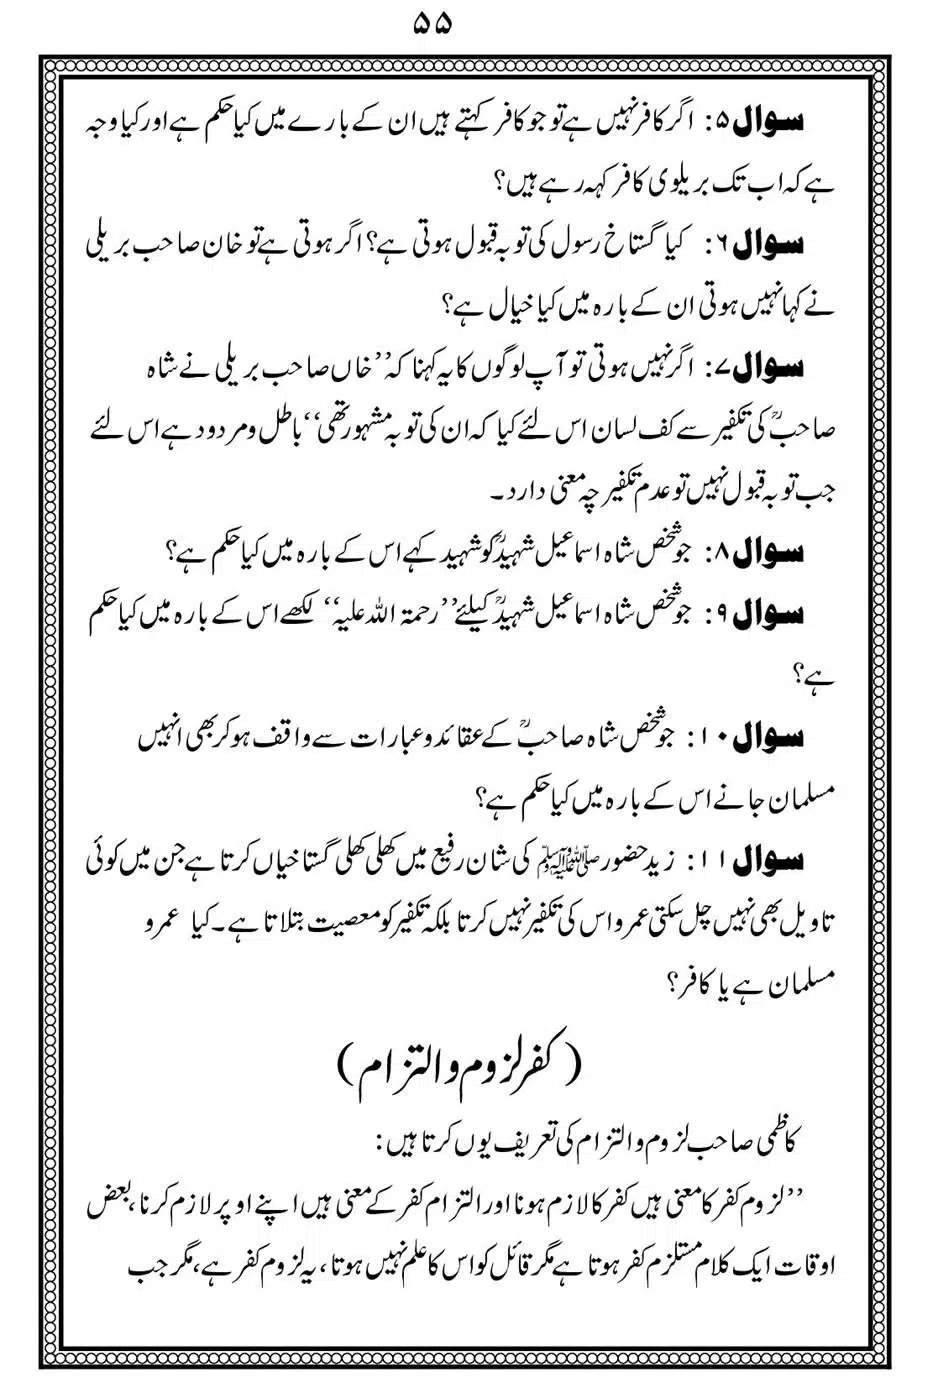 ۵۵
سوال۵: اگر کافر نہیں ہے تو جو کافر کہتے ہیں ان کے بارے میں کیا حکم ہے اور کیا وجہ
ہے کہ اب تک بریلوی کافر کہہ رہے ہیں؟
سوال۶: کیا گستاخ رسول کی توبہ قبول ہوتی ہے؟ اگر ہوتی ہے تو خان صاحب بریلی
نے کہا نہیں ہوتی ان کے بارہ میں کیا خیال ہے؟
سوال۷: اگر نہیں ہوتی تو آپ لوگوں کا یہ کہنا کہ ’’خاں صاحب بریلی نے شاہ
صاحبؒ کی تکفیر سے کف لسان اس لئے کیا کہ ان کی توبہ مشہور تھی‘‘ باطل و مردود ہے اس لئے
جب توبہ قبول نہیں تو عدم تکفیر چہ معنی دارد۔
سوال۸: جو شخص شاہ اسماعیل شہیدؒ کو شہید کہے اس کے بارہ میں کیا حکم ہے؟
سوال۹: جو شخص شاہ اسماعیل شہیدؒ کیلئے ’’رحمۃ اللہ علیہ‘‘ لکھے اس کے بارہ میں کیا حکم
ہے؟
سوال۱۰: جو شخص شاہ صاحبؒ کے عقائد و عبارات سے واقف ہو کر بھی انہیں
مسلمان جانے اس کے بارہ میں کیا حکم ہے؟
سوال۱۱: زید حضور ﷺ کی شان رفیع میں کھلی کھلی گستاخیاں کرتا ہے جن میں کوئی
تاویل بھی نہیں چل سکتی عمرو اس کی تکفیر نہیں کرتا بلکہ تکفیر کو معصیت بتلاتا ہے۔ کیا عمرو
مسلمان ہے یا کافر؟
(کفر لزوم و التزام)
کاظمی صاحب لزوم و التزام کی تعریف یوں کرتا ہیں:
’’لزوم کفر کا معنی ہیں کفر کا لازم ہونا اور التزام کفر کے معنی ہیں اپنے اوپر لازم کرنا، بعض
اوقات ایک کلام مستلزم کفر ہوتا ہے مگر قائل کو اس کا علم نہیں ہوتا، یہ لزوم کفر ہے، مگر جب